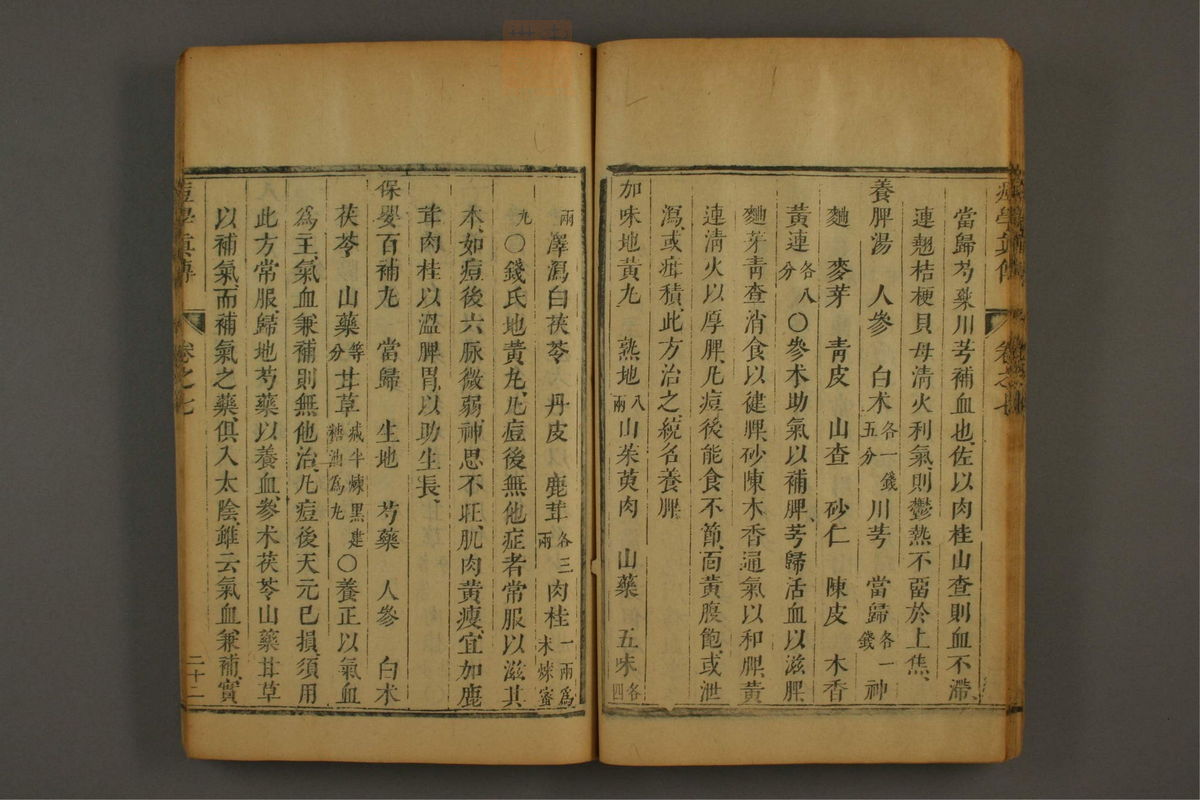 當歸芍藥川芎補血也佐以肉桂山查則血不滯
連翹桔梗貝母清火利氣則鬱熱不畱於上焦
養脾湯 人參 白朮各一錢五分 川芎 當歸各一錢 神
麯 麥芽 靑皮 山查 砂仁 陳皮 木香
黃連各八分 〇參朮助氣以補脾芎歸活血以滋脾
麯芽靑查消食以健脾砂陳木香通氣以和脾黃
連淸火以厚脾凡痘後能食不節面黃腹飽或泄
瀉或疳積此方治之統名養脾
加味地黃丸 熟地八兩 山茱萸肉 山藥 五味各四
兩 澤瀉白茯苓 丹皮 鹿茸各三兩 肉桂一兩爲末煉蜜
丸 〇錢氏地黃丸凡痘後無他症者常服以滋其
水如痘後六脉微弱神思不旺肌肉黃瘦宜如鹿
茸肉桂以溫脾胃以助生長
保嬰百補丸 當歸 生地 芍藥 人參 白朮
茯苓 山藥等分 甘草減半煉黑建糖油爲丸 〇養正以氣血
爲主氣血兼補則無他治凡痘後天元已損須用
此方常服歸地芍藥以養血參朮茯苓山藥甘草
以補氣而補氣之藥俱入太陰雖云氣血兼補實
痘學眞傳 卷之七 二十二